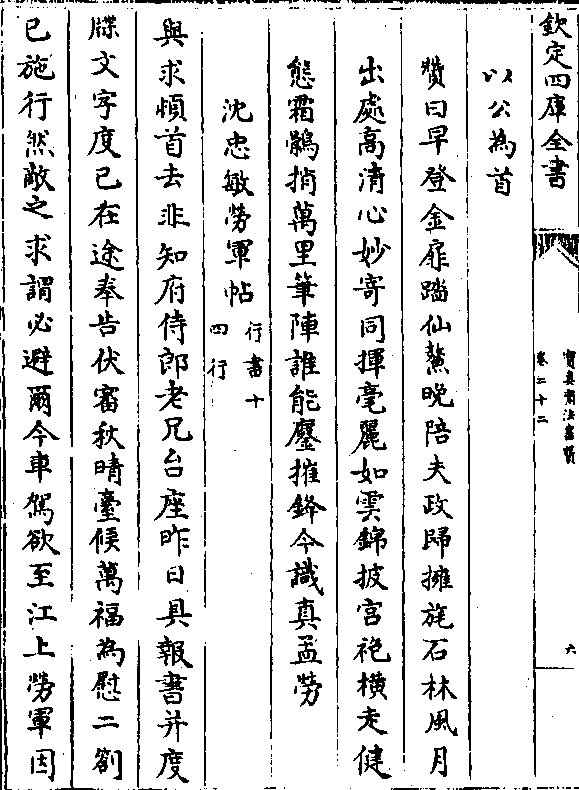 欽定四庫全書
寶真齋法書贊
卷二十二
六
以公為首
贊曰早登金扉踏仙鰲晚陪夫政歸擁旄石林風月
出處高清心妙寄同揮毫麗如雲錦披宫袍横走健
態霜鶻捎萬里筆陣誰能鏖摧鋒今識真孟勞
沈忠敏勞軍帖
行書十
四行
與求頓首去非知府侍郎老兄台座昨日具報書并度
牒文字度已在途奉告伏審秋晴臺候萬福為慰二劄
已施行然敵之求謂必避爾今車駕欲至江上勞軍因